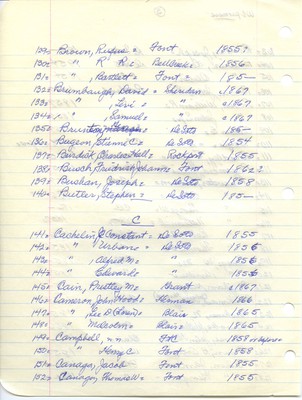 129. Brown, Rufus = Font 1855?
130. " R. R. = Bullock = 1856
131. " , Bartlett = Font = 185—
132. Brumbaugh, David = Sheridan c1867
133. " , Levi = " c1867
134. " , Samuel = " c1867
135. = De Soto 185—
136. Bugeon, Etienne C = De Soto 1854
137. Charles Hall = Rockport 1855
138. Busch, Johann = Font 186
139. Bushan, Joseph = De Soto 1858
140. Butler, Stephen = De Soto 185—
C
141. Constant = De Soto 1855
142. " Urbane = De Soto 1856
143. " , Alfred M = " 1856
144. " Edward = " 1856
145. Cain, Prestley M = Grant c1867
146. Cameron, John Hood = Herman 1866
147. " , Blair 1865
148. " Malcolm = Blair = 1865
149. Campbell, FtC 1858 or before
150. " Henry C Font 1858
151. Canaga, Jacob Font 1855
152. Canaga, Font 1855